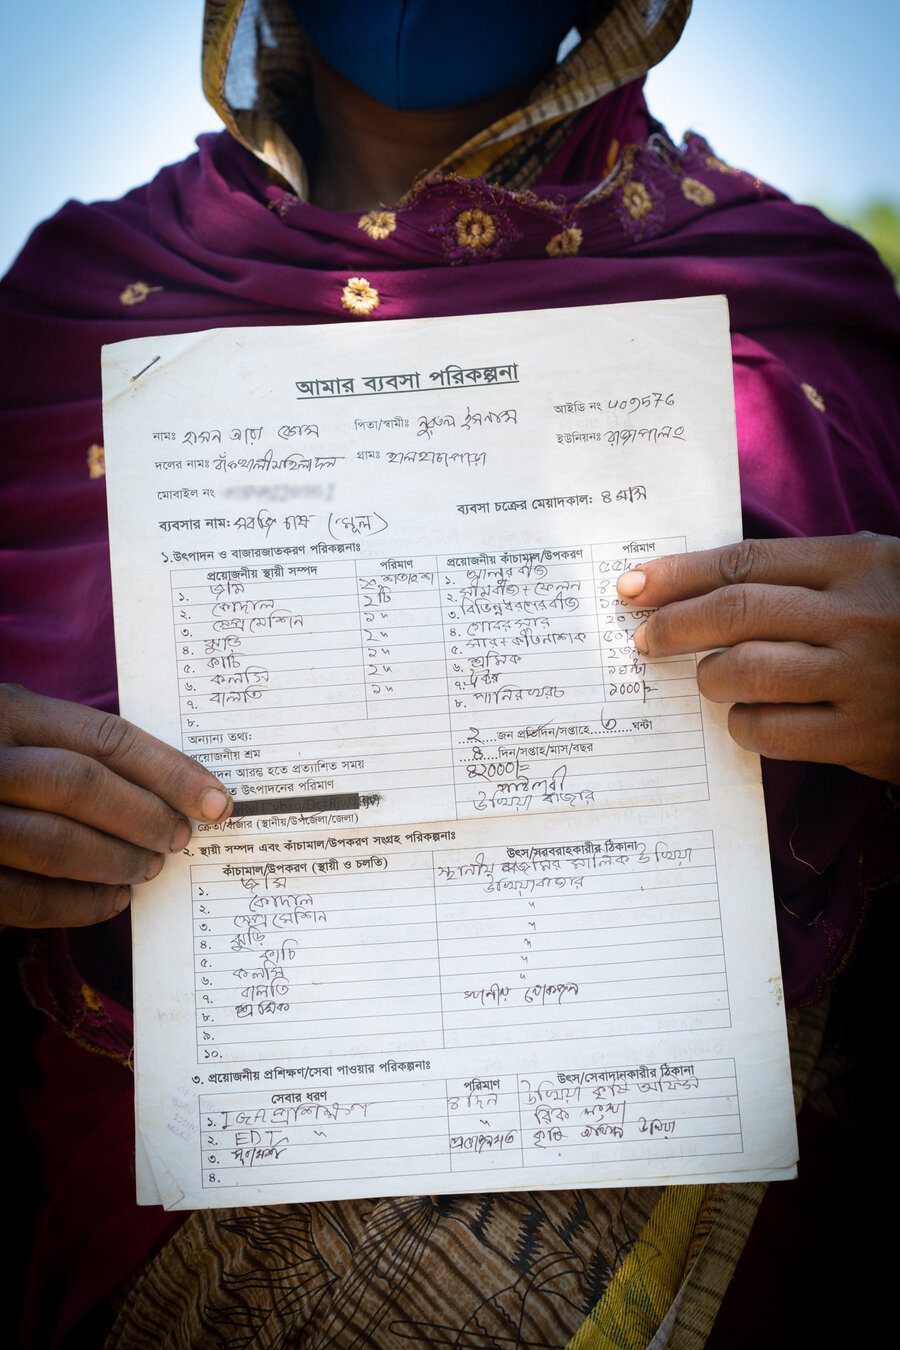 আমার ব্যবসা পরিকল্পনা
নামঃ হাসন আরা বেগম পিতা/স্বামীঃ নুরুল ইসলাম আইডি নং
দলের নামঃ বাঁকখালী মহিলা দল গ্রামঃ ইউনিয়নঃ রাজাপালং
মোবাইল নং
ব্যবসার নামঃ সবজি চাষ (মূল) ব্যবসা চক্রের মেয়াদকালঃ ৪ মাস
১. উৎপাদন ও বাজারজাতকরণ পরিকল্পনাঃ
প্রয়োজনীয় স্থায়ী সম্পদ পরিমাণ প্রয়োজনীয় কাঁচামাল/উপকরণ পরিমাণ
১. জমি ২০ শতাংশ ১. আলুর বীজ
২. কোদাল ২টি ২. সীমবীজ + ফেলন
৩. স্প্রে মেশিন ১" ৩. বিভিন্ন ধরণের বীজ
৪. ঝুড়ি ২" ৪. গোবর সার ২০
৫. কাচি ১" ৫. সার + কীটনাশক
৬. কলসি ২" ৬. শ্রমিক
৭. বালতি ১" ৭.
৮. ৮. পানির খরচ ১০০০/=
অন্যান্য তথ্য:
প্রয়োজনীয় শ্রম ২ জন প্রতিদিন/সপ্তাহে ৩ ঘন্টা
দন আরম্ভ হতে প্রত্যাশিত সময় ৪ দিন/সপ্তাহ/মাস/বছর
ত উৎপাদনের পরিমাণ ৪২০০০/=
পাইকারী
ক্রেতা/বাজার (স্থানীয়/উপজেলা/জেলা) উখিয়া বাজার
২. স্থায়ী সম্পদ এবং কাঁচামাল/উপকরণ সংগ্রহ পরিকল্পনাঃ
কাঁচামাল/উপকরণ (স্থায়ী ও চলতি) উৎস/সরবরাহকারীর ঠিকানা
১. জমি স্থানীয় জমির মালিক উখিয়া
২. কোদাল উখিয়া বাজার
৩. স্প্রে মেশিন "
৪. ঝুড়ি "
৫. কাচি "
৬. কলসি "
৭. বালতি "
৮. শ্রমিক স্থানীয় লোকজন
৯.
১০.
৩. প্রয়োজনীয় প্রশিক্ষণ/সেবা পাওয়ার পরিকল্পনাঃ
সেবার ধরণ পরিমাণ উৎস/সেবাদানকারীর ঠিকানা
১. IGA প্রশিক্ষণ ৪ দিন উখিয়া কৃষি অফিস
২. EDT " " রিক সংস্থা
৩. পরামর্শ প্রয়োজনমত কৃষি অফিস উখিয়া
৪.